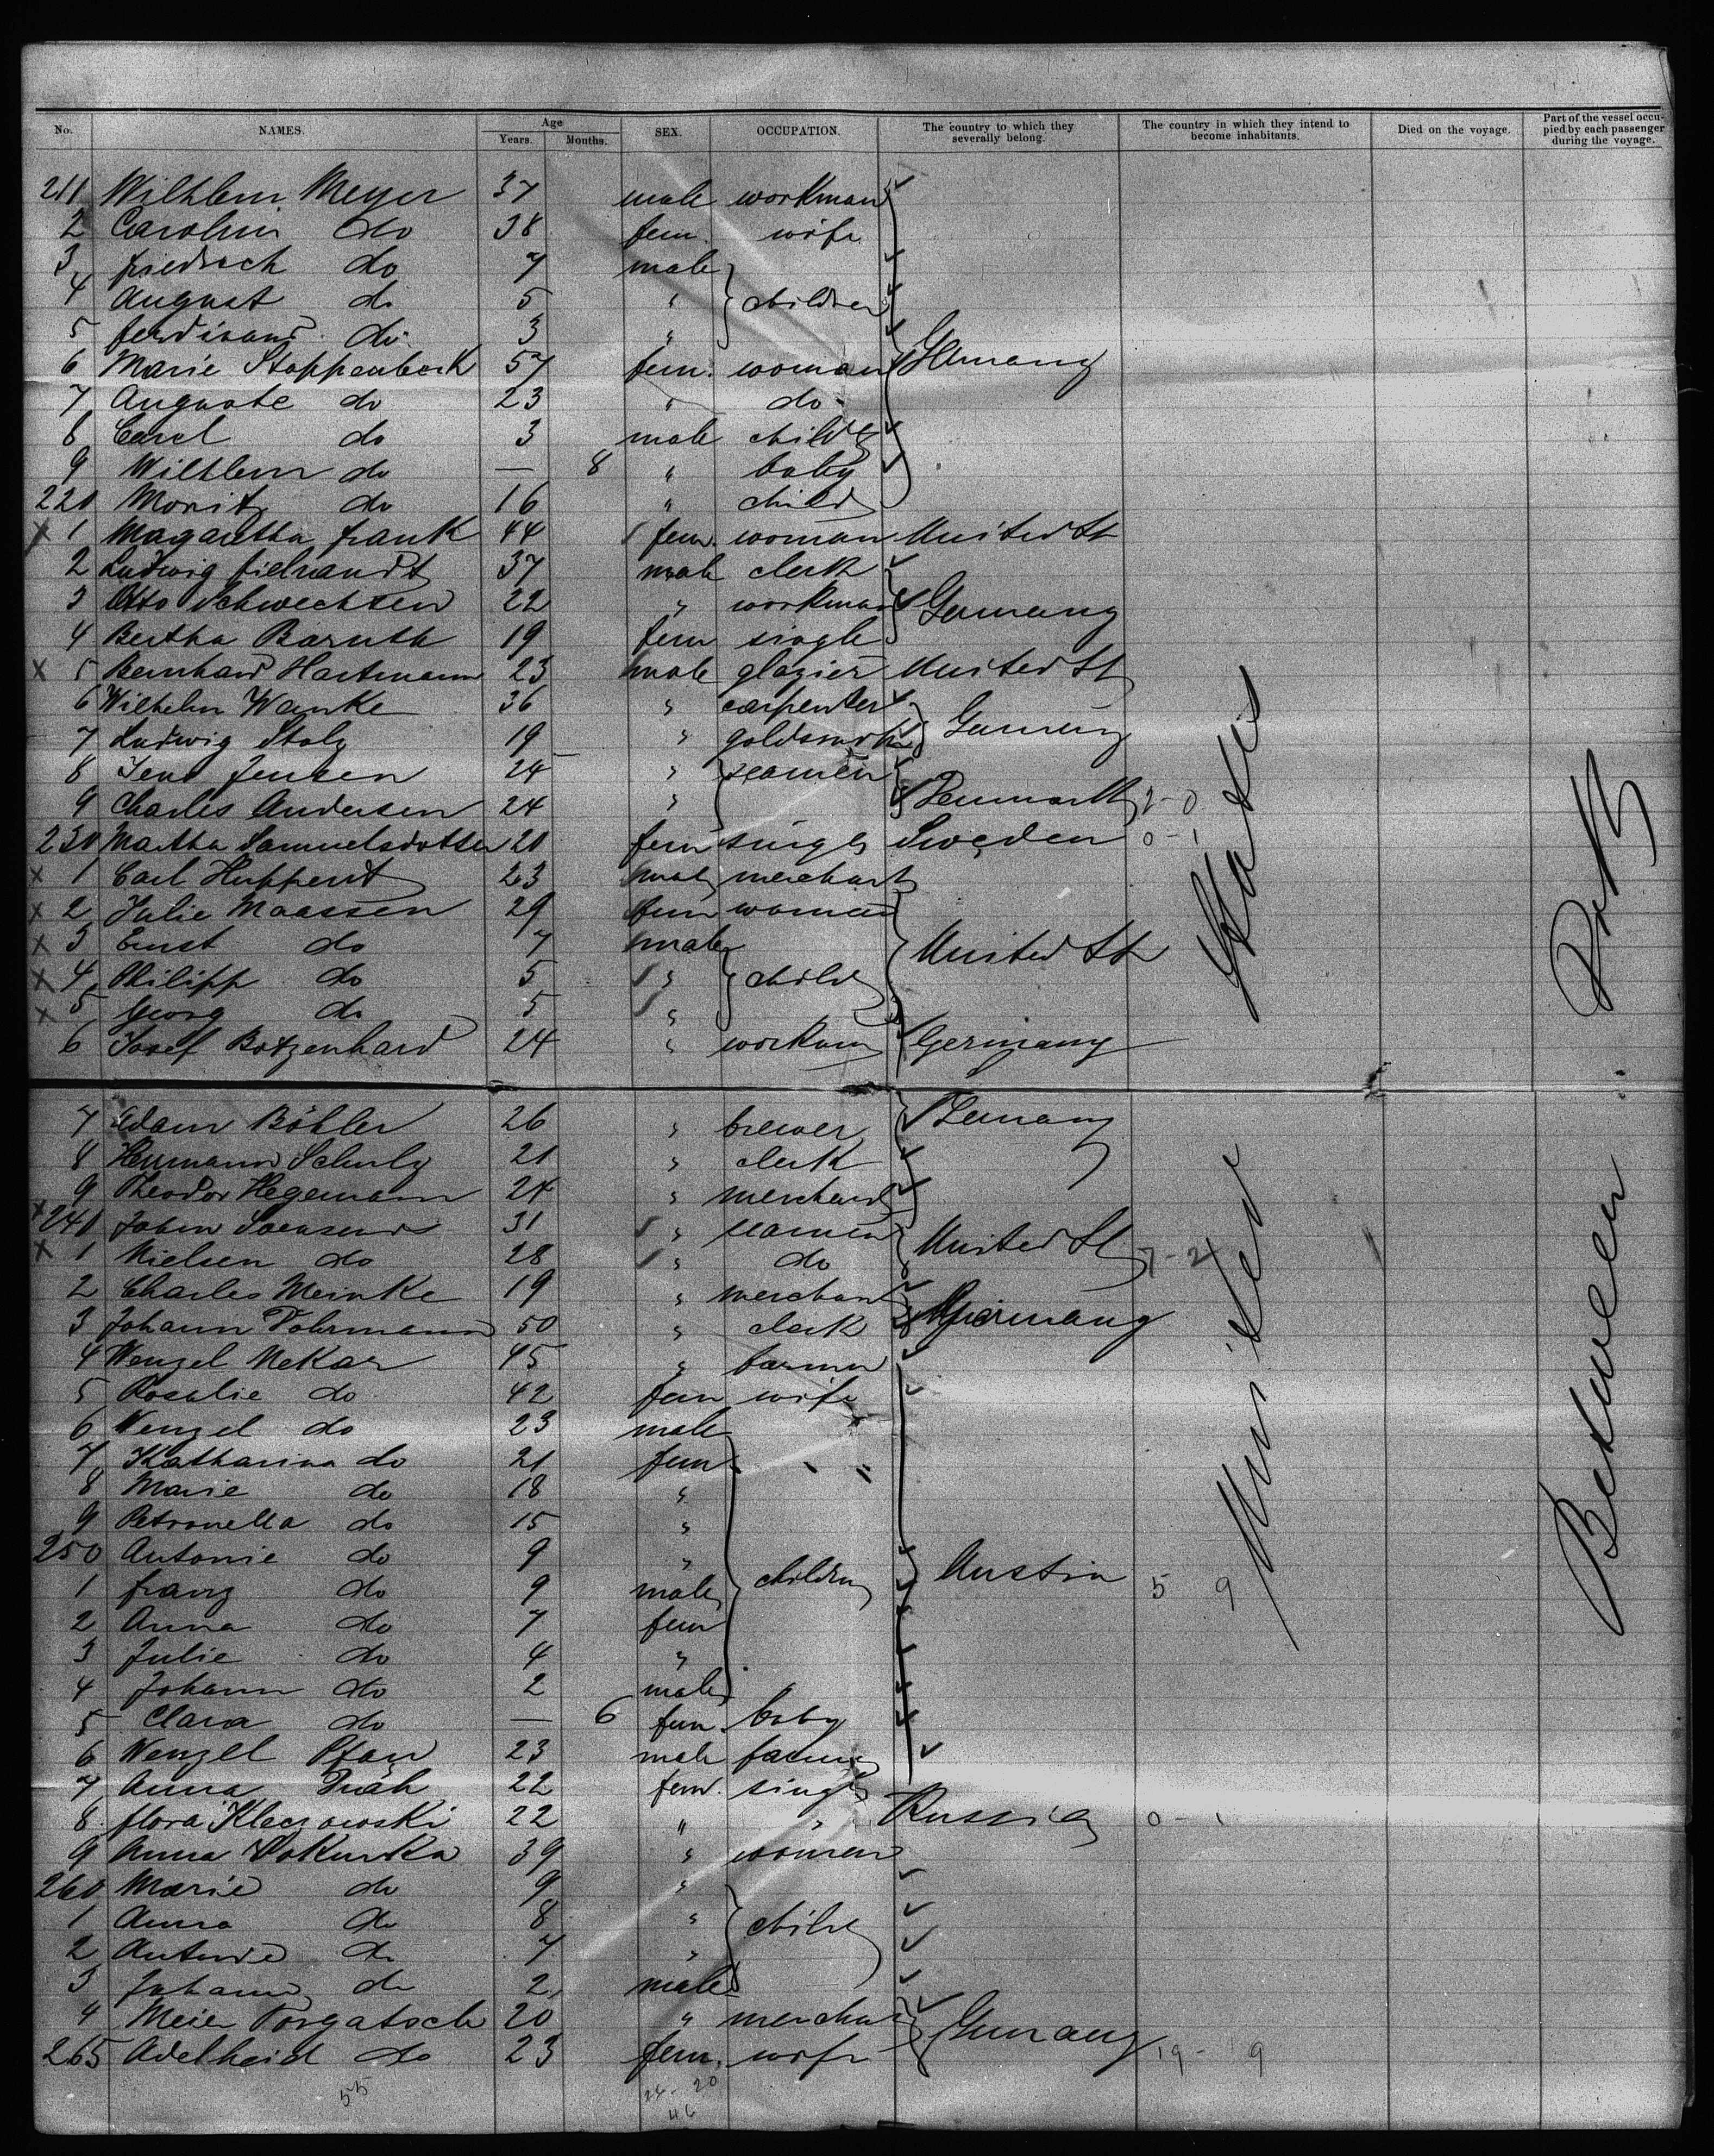 No. NAMES. Age Years. Months. SEX. OCCUPATION. The country to which they severally belong. The country in which they intend to become inhabitants. Died on the voyage. Part of the vessel occupied by each passenger during the voyage.
211 Wilhlem Meyer 37 male workman
2 Carolin do 38 fem. wife
3 friedrich do 7 male
4 August do 5 " children
5 ferdinand do 3 "
6 Marie Stappenbeck 57 fem. woman Germany
7 Auguste do 23 " do
8 Carl do 3 male child
9 Wilhlem do — 8 " baby
220 Moritz do 16 " child
x 1 Magaretha frank 44 fem. woman United St
2 Ludwig 37 male clerk
3 Otto Schwechten 22 " workman Germany
4 Bertha Baruth 19 fem single
x 5 Bernhard Hartmann 23 male glazier United St
6 Wilhelm Wanke 36 " carpenter Germany
7 Ludwig Stolz 19 " goldsmith
8 Jens Jensen 24 " seamen
9 Charles Andersen 24 " Denmark 2 - 0
230 Martha Samuelsdotter 20 fem single Sweden 0 - 1
x 1 Carl Huppert 23 male merchant
x 2 Julie Maassen 29 fem woman
x 3 Ernst do 7 male United St
x 4 Philipp do 5 " child
x 5 Georg do 5 "
6 Josef Botzenhard 24 " workman Germany
7 Adam Böhler 26 " brewer Germany
8 Hermann Schulz 21 " clerk
9 Theodor Hegemann 24 " merchand
x 240 John 31 " seamen United St 7 - 2
x 1 Nielsen do 28 " do
2 Charles Meinke 19 " merchant
3 Johann Pohrmann 50 " clerk Germany
4 Wenzel Nekar 45 " farmer
5 Rosalie do 42 fem wife
6 Wenzel do 23 male
7 Katharina do 21 fem
8 Marie do 18 "
9 Petronella do 15 "
250 Antonie do 9 " children Austria 5 9
1 franz do 9 male
2 Anna do 7 fem
3 Julie do 4 "
4 Johann do 2 male
5 Clara do — 6 fem. baby
6 Wenzel 23 male farmer
7 Anna 22 fem. single
8 flora Kleczowski 22 " " Russia 0 - 1
9 Anna 39 " women
260 Marie do 9 "
1 Anna do 8 " child
2 Antonie do 7 "
3 Johann do 2 male
4 Meier Torgatsch 20 " merchant Germany
265 Adelheid do 23 fem. wife 19 - 9
55 24 - 20
46
United States
Between Deck